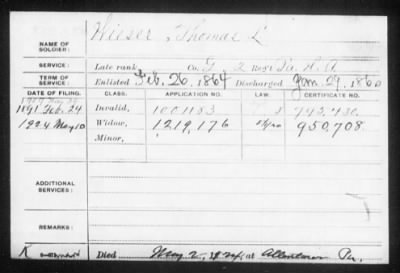 NAME OF SOLDIER: Wieser, Thomas L
SERVICE: Late rank, Co. G, 2 Reg't Pa. H. A.
TERM OF SERVICE: Enlisted Feb. 26, 1864 Discharged Jan. 29, 1866
DATE OF FILING. CLASS. APPLICATION NO. LAW. CERTIFICATE NO.
1891 Feb. 24 Invalid, 1001183 792,430
1924 May 10 Widow, 1219,176 950,708
Minor,
ADDITIONAL SERVICES:
REMARKS:
Died May 2, 1924, at Allentown Pa.